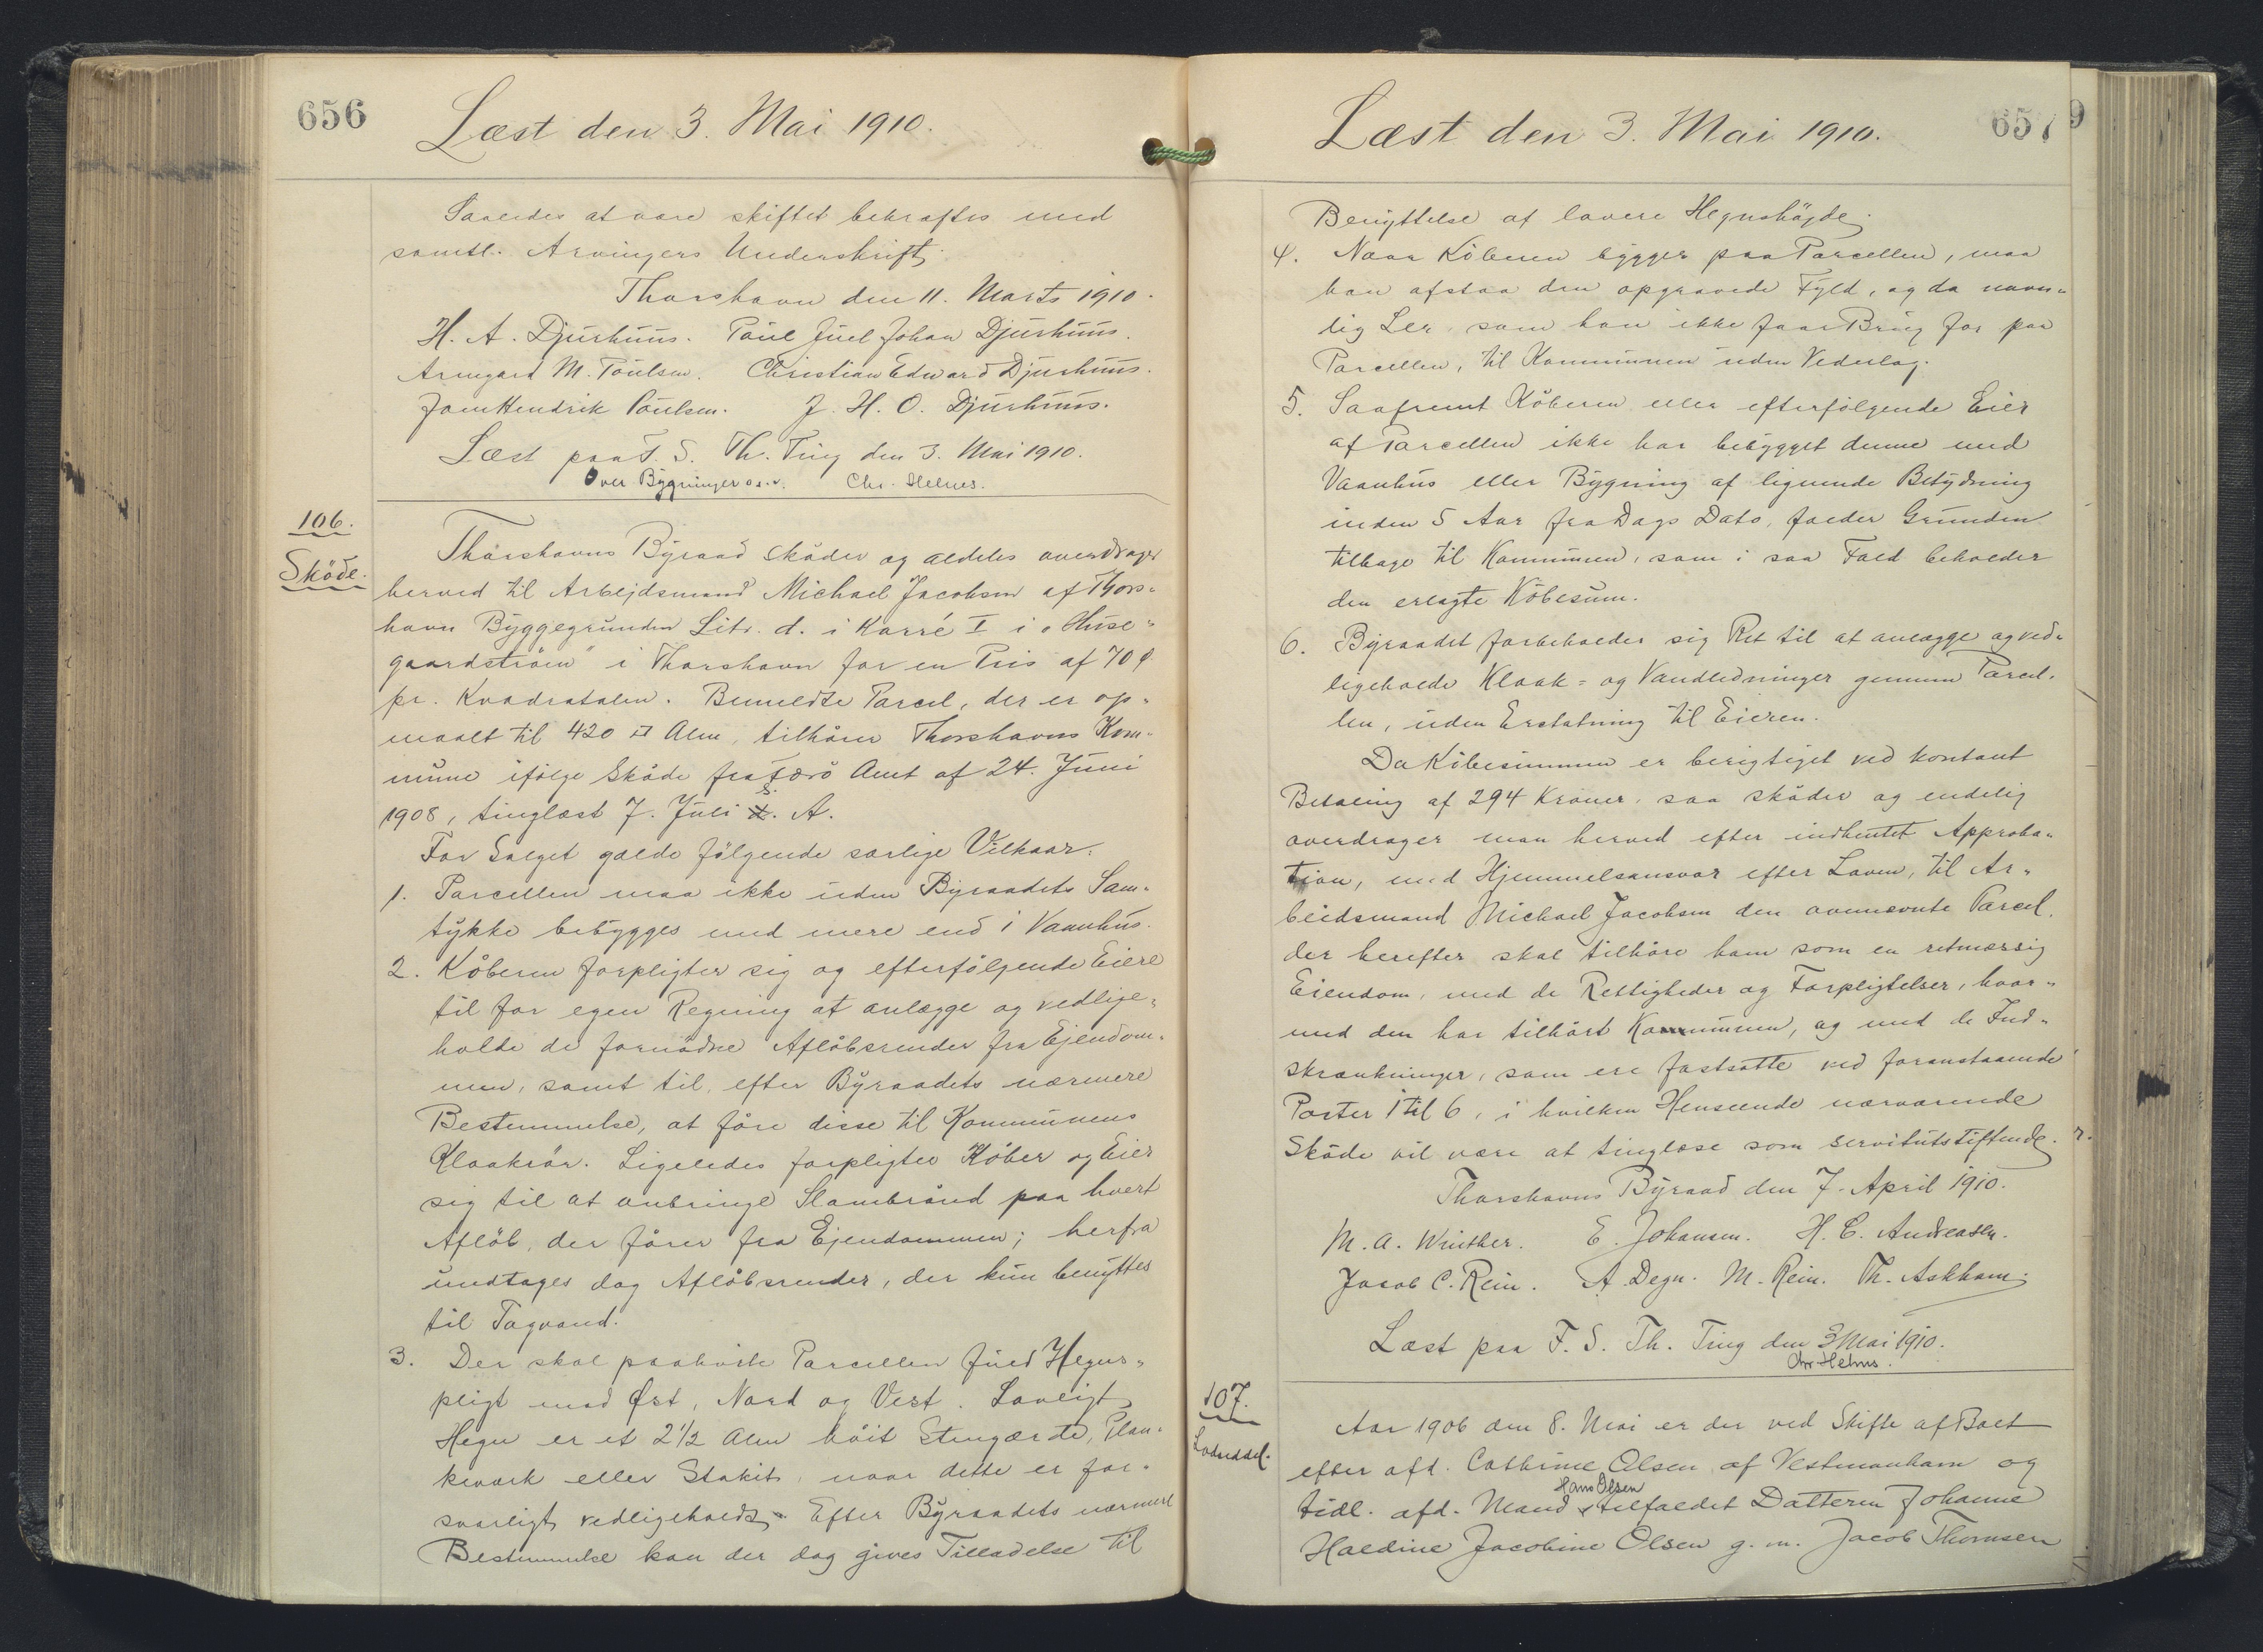 656
Læst den 3. Mai 1910.
Saaledes at være skiftet bekræftes med
samtl. Arvingers Underskrift.
Thorshavn den 11. Marts 1910.
H. A. Djurhuus. Poul Juel Johan Djurhuus.
Armgard M. Poulsen. Christian Edward Djurhuus.
Joen Hendrik Poulsen. J. H. O. Djurhuus.
Læst paa F. S. Th. Ting den 3. Mai 1910.
Over Bygninger o.s.v. Chr. Helms.
106.
Sköde.
Thorshavns Byraad sköder og aldeles overdrager
herved til Arbejdsmand Michael Jacobsen af Thors-
havn Byggegrunden Litr. d. i Karré I i "Huse-
gaardströen" i Thorshavn for en Pris af 70 Ø
pr. Kvadratalen. Bemeldte Parcel, der er op-
maalt til 420 □ Alen, tilhörer Thorshavns Kom-
mune ifölge Sköde fra Færö Amt af 24. Juni
1908, tinglæst 7. Juli s. A.
For Salget gælde fölgende særlige Vilkaar:
1. Parcellen maa ikke uden Byraadets Sam-
tykke bebygges med mere end 1 Vaanhus.
2. Köberen forpligter sig og efterfölgende Eiere
til for egen Regning at anlægge og vedlige-
holde de fornödne Aflöbsrender fra Ejendom-
men, samt til, efter Byraadets nærmere
Bestemmelse, at före disse til Kommunens
Kloakrör. Ligeledes forpligter Köber og Eier
sig til at anbringe Slambrönd paa hvert
Aflöb, der förer fra Ejendommen; herfra
undtages dog Aflöbsrender, der kun benyttes
til Tagvand.
3. Der skal paahvile Parcellen fuld Hegns-
pligt mod Øst, Nord og Vest. Lovligt
Hegn er et 2½ Alen höit Stengærde, Plan-
keværk eller Stakit, naar dette er for-
svarligt vedligeholdt. Efter Byraadets nærmere
Bestemmelse kan der dog gives Tilladelse til
657
9
Læst den 3. Mai 1910.
Benyttelse af lavere Hegnshöjde.
4. Naar Köberen bygger paa Parcellen, maa
han afstaa den opgravede Fyld, og da navn-
lig Ler, som han ikke faar Brug for paa
Parcellen, til Kommunen uden Vederlag.
5. Saafremt Köberen eller efterfölgende Eier
af Parcellen ikke har bebygget denne med
Vaanhus eller Bygning af lignende Betydning
inden 5 Aar fra Dags Dato, falder Grunden
tilbage til Kommunen, som i saa Fald beholder
den erlagte Köbesum.
6. Byraadet forbeholder sig Ret til at anlægge og ved-
ligeholde Kloak- og Vandledninger gennem Parcel-
len, uden Erstatning til Eieren.
Da Köbesummen er berigtiget ved kontant
Betaling af 294 Kroner, saa sköder og endelig
overdrager man herved efter indhentet Approba-
tion, med Hjemmelsansvar efter Loven, til Ar-
beidsmand Michael Jacobsen den ovennævnte Parcel,
der herefter skal tilhöre ham som en retmæssig
Eiendom, med de Rettigheder og Forpligtelser, hvor-
med den har tilhört Kommunen, og med de Ind-
skrænkninger, som ere fastsatte ved foranstaaende
Poster 1 til 6, i hvilken Henseende nærværende
Sköde vil være at tinglæse som servitutstiftende.
Thorshavns Byraad den 7. April 1910.
M. A. Winther. E. Johansen. H. C. Andreasen.
Jacob C. Rein. A. Degn. M. Rein. Th. Askham.
Læst paa F. S. Th. Ting den 3 Mai 1910.
Chr Helms.
107.
Lodseddel.
Aar 1906 den 8. Mai er der ved Skifte af Boet
efter afd. Cathrine Olsen af Vestmanhavn og
tidl. afd. Mand Hans Olsen tilfaldet Datteren Johanne
Haldine Jacobine Olsen g. m. Jacob Thomsen